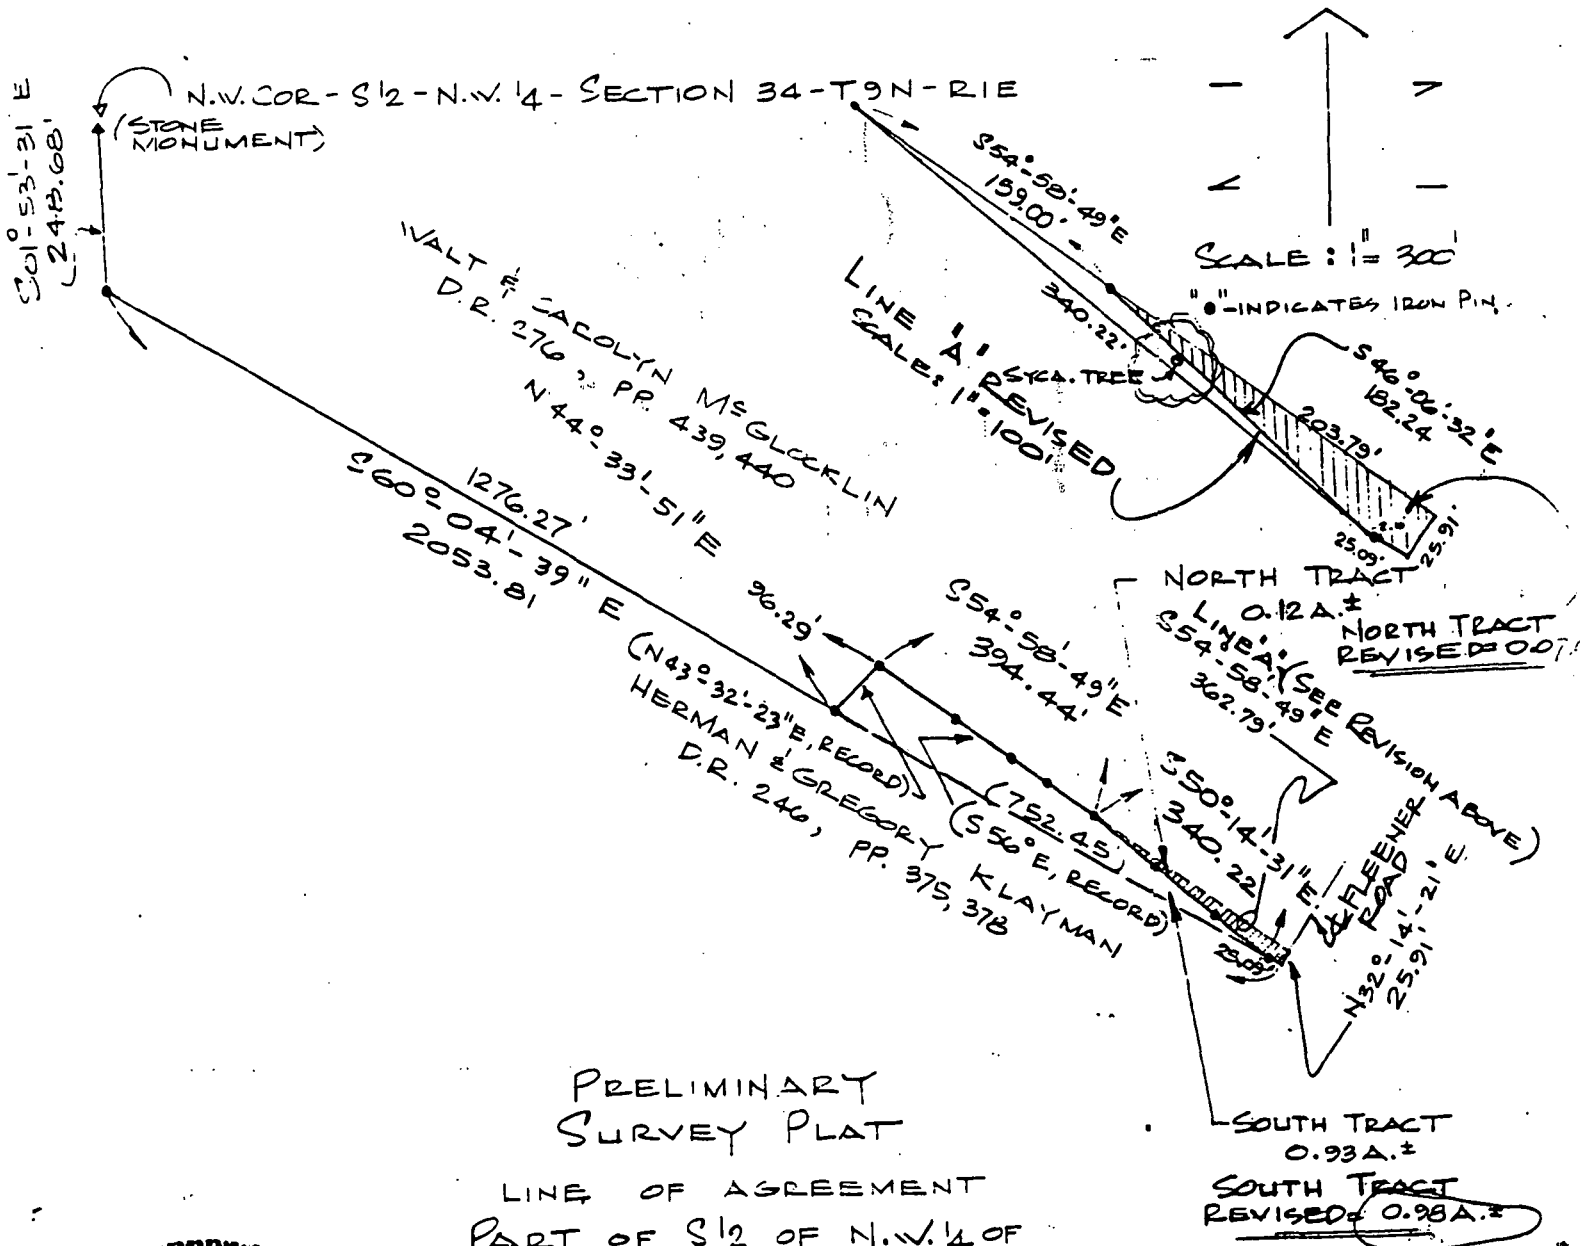 N.W. COR - S 1/2 - N.W. 1/4 - SECTION 34 - T9N - R1E
(STONE
MONUMENT)
S01°-53'-31 E
243.68'
SCALE : 1" = 300'
"●"-INDICATES IRON PIN.
S54°-58'-49"E
159.00'
340.22'
LINE 'A' REVISED
SCALE: 1" = 100'
SYCA. TREE
S46°-06'-32"E
182.24
203.79'
25.09'
25.91'
WALT & CAROLYN McGLOCKLIN
D.R. 276, PP. 439, 440
N 44°-33'-51" E
1276.27'
S60°-04'-39" E
2053.81
96.29'
(N43°-32'-23"E, RECORD)
HERMAN & GREGORY KLAYMAN
D.R. 246, PP. 375, 378
S54°-58'-49"E
394.44'
(752.45')
(S56°E, RECORD)
NORTH TRACT
0.12 A.±
NORTH TRACT
REVISED=
LINE 'A' (SEE REVISION ABOVE)
S54°-58'-49" E
362.79'
S50°-14'-31"E
340.22
25.09'
℄ FLEENER
ROAD
N32°-14'-21" E
25.91'
SOUTH TRACT
0.93 A.±
SOUTH TRACT
REVISED= 0.98 A.±
PRELIMINARY
SURVEY PLAT
LINE OF AGREEMENT
PART OF S 1/2 OF N.W. 1/4 OF